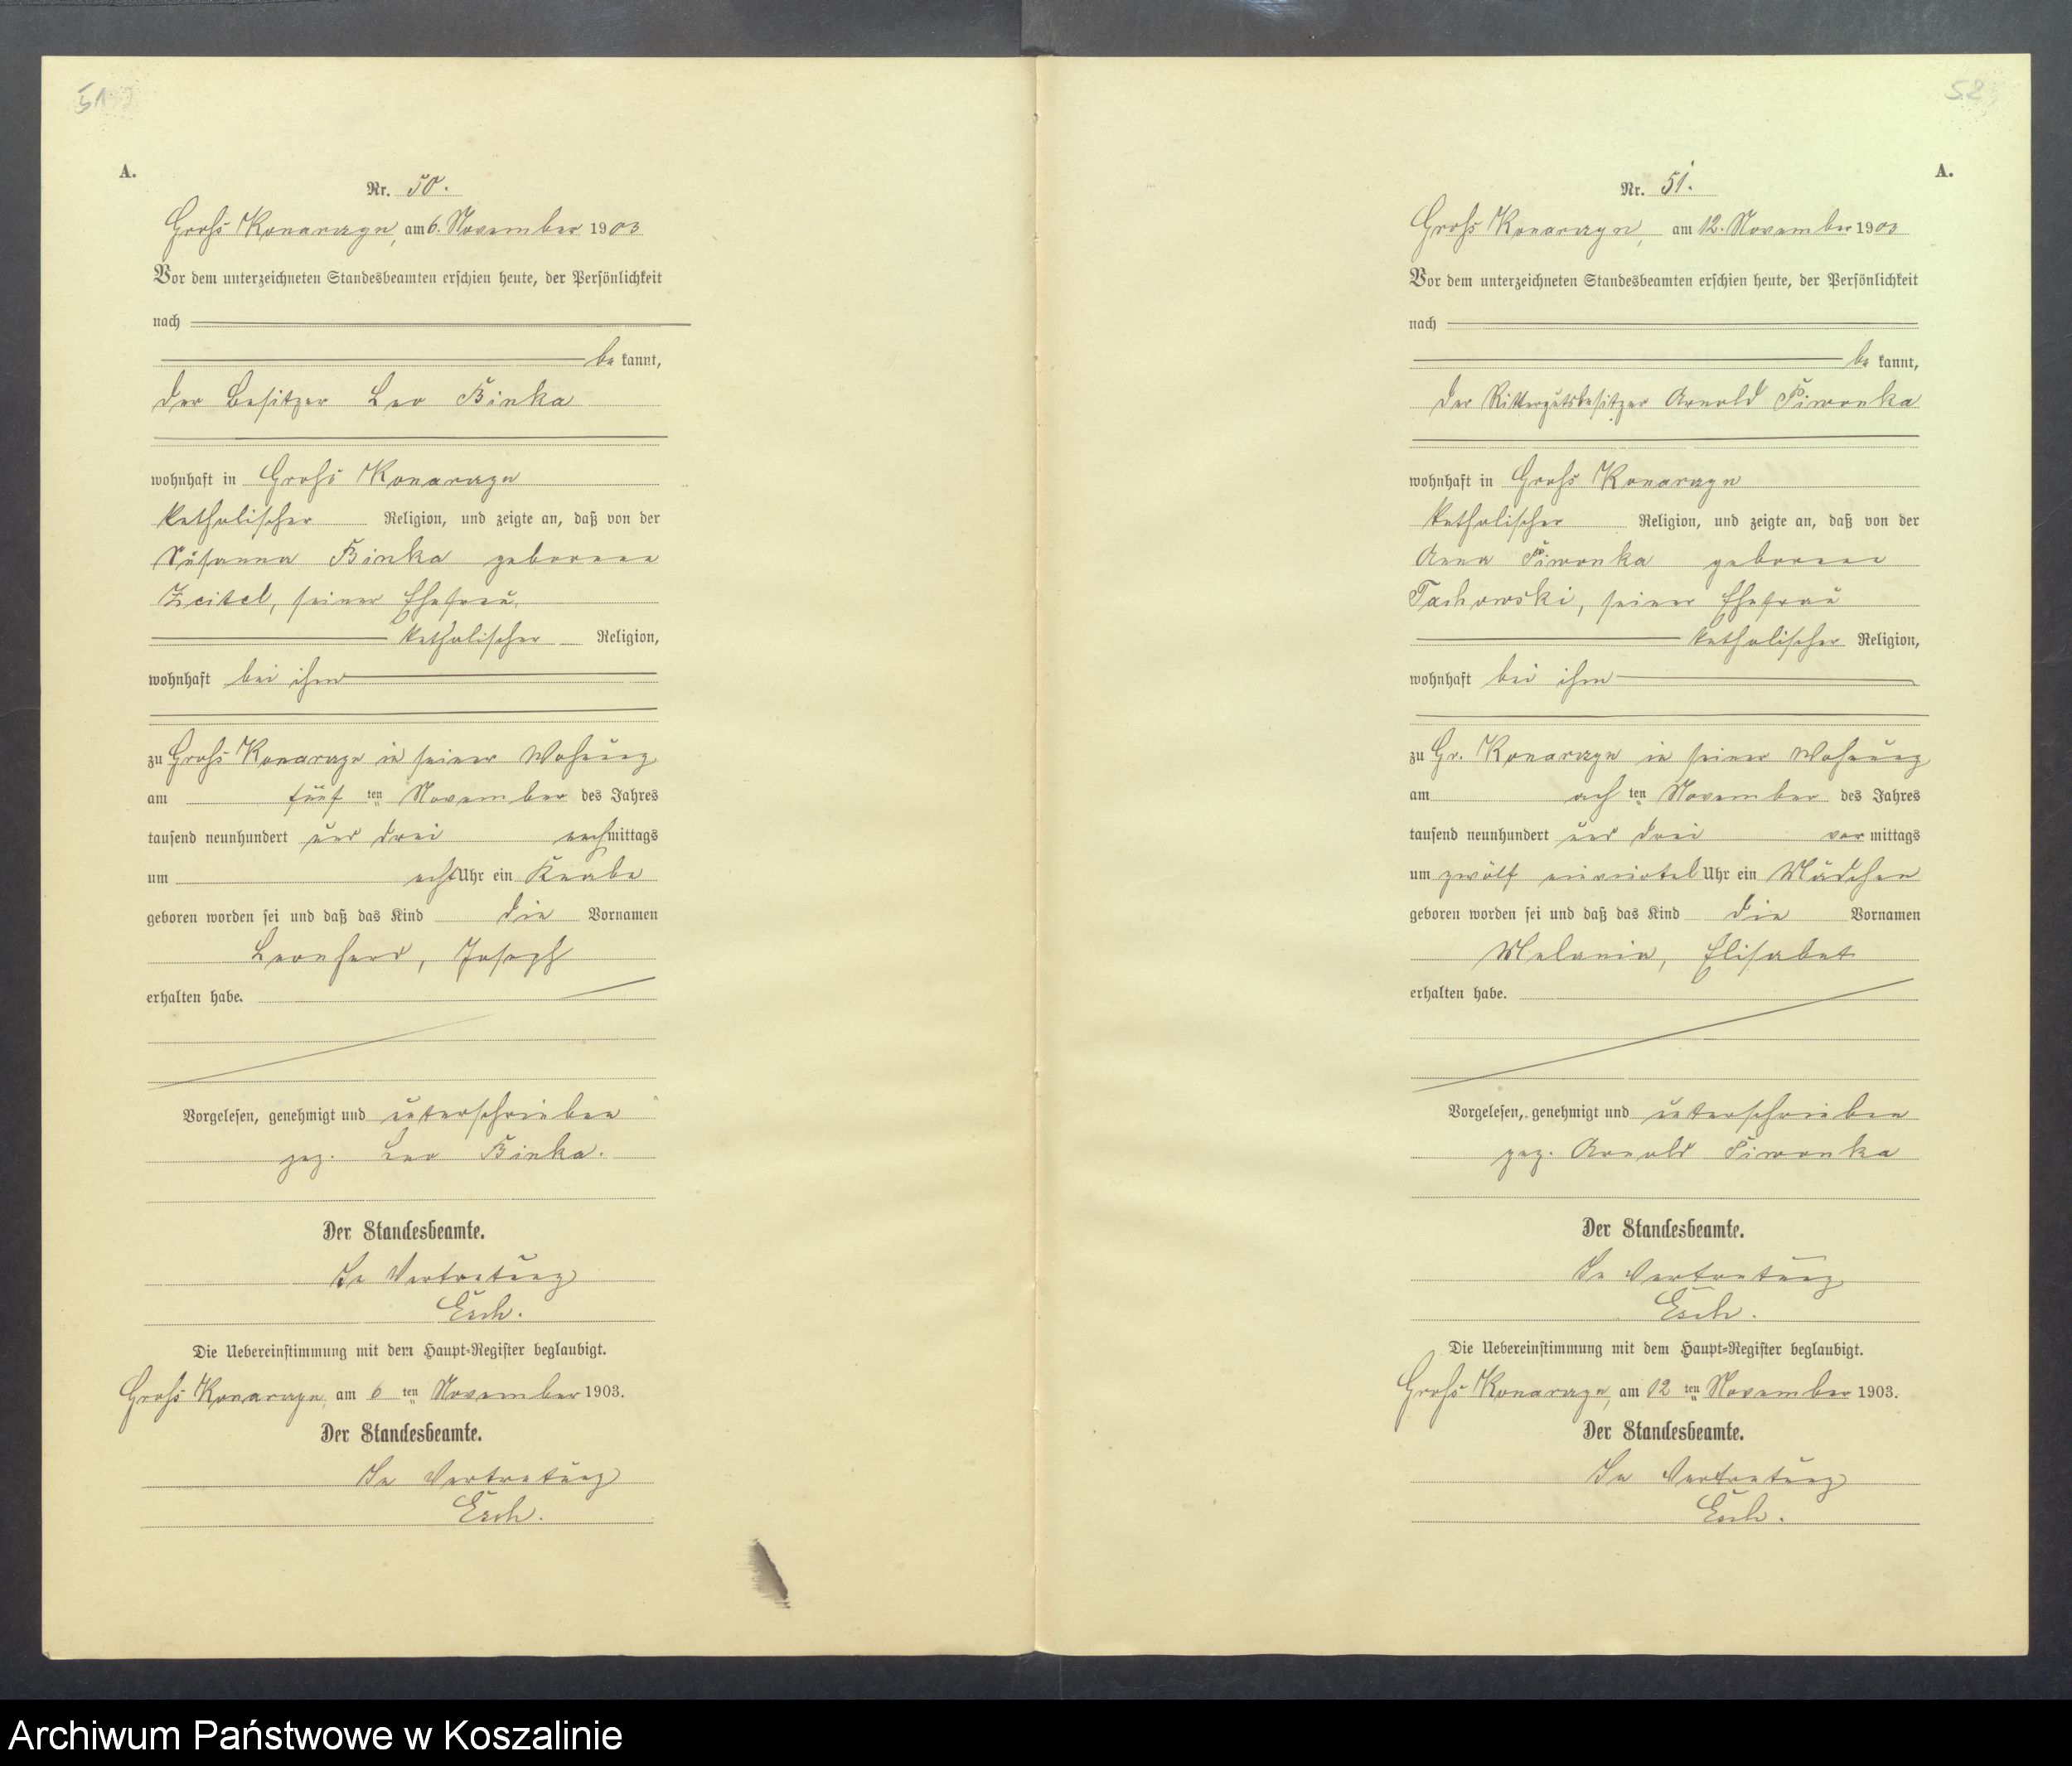 51
A.
Nr. 50.
Groß Konarczyn, am 6. November 1903
Vor dem unterzeichneten Standesbeamten erschien heute, der Persönlichkeit
nach
be kannt,
der Besitzer Leo Binka
wohnhaft in Groß Konarczyn
katholischer Religion, und zeigte an, daß von der
Susanna Binka geborene
Zeitel, seiner Ehefrau,
katholischer Religion,
wohnhaft bei ihm
zu Groß Konarczyn in seiner Wohnung
am fünf ten November des Jahres
tausend neunhundert und drei nachmittags
um acht Uhr ein Knabe
geboren worden sei und daß das Kind die Vornamen
Leonhard, Joseph
erhalten habe.
Vorgelesen, genehmigt und unterschrieben
gez. Leo Binka.
Der Standesbeamte.
In Vertretung
Esch.
Die Uebereinstimmung mit dem Haupt-Register beglaubigt.
Groß Konarczyn, am 6 ten November 1903.
Der Standesbeamte.
In Vertretung
Esch.
52
A.
Nr. 51.
Groß Konarczyn, am 12. November 1903
Vor dem unterzeichneten Standesbeamten erschien heute, der Persönlichkeit
nach
be kannt,
der Rittergutsbesitzer Arnold Piwonka
wohnhaft in Groß Konarczyn
katholischer Religion, und zeigte an, daß von der
Anna Piwonka geborene
Tachowski, seiner Ehefrau
katholischer Religion,
wohnhaft bei ihm
zu Gr. Konarczyn in seiner Wohnung
am ach ten November des Jahres
tausend neunhundert und drei vor mittags
um zwölf einviertel Uhr ein Mädchen
geboren worden sei und daß das Kind die Vornamen
Melania, Elisabet
erhalten habe.
Vorgelesen, genehmigt und unterschrieben
gez. Arnold Piwonka
Der Standesbeamte.
In Vertretung
Esch.
Die Uebereinstimmung mit dem Haupt-Register beglaubigt.
Groß Konarczyn, am 12 ten November 1903.
Der Standesbeamte.
In Vertretung
Esch.
Archiwum Państwowe w Koszalinie